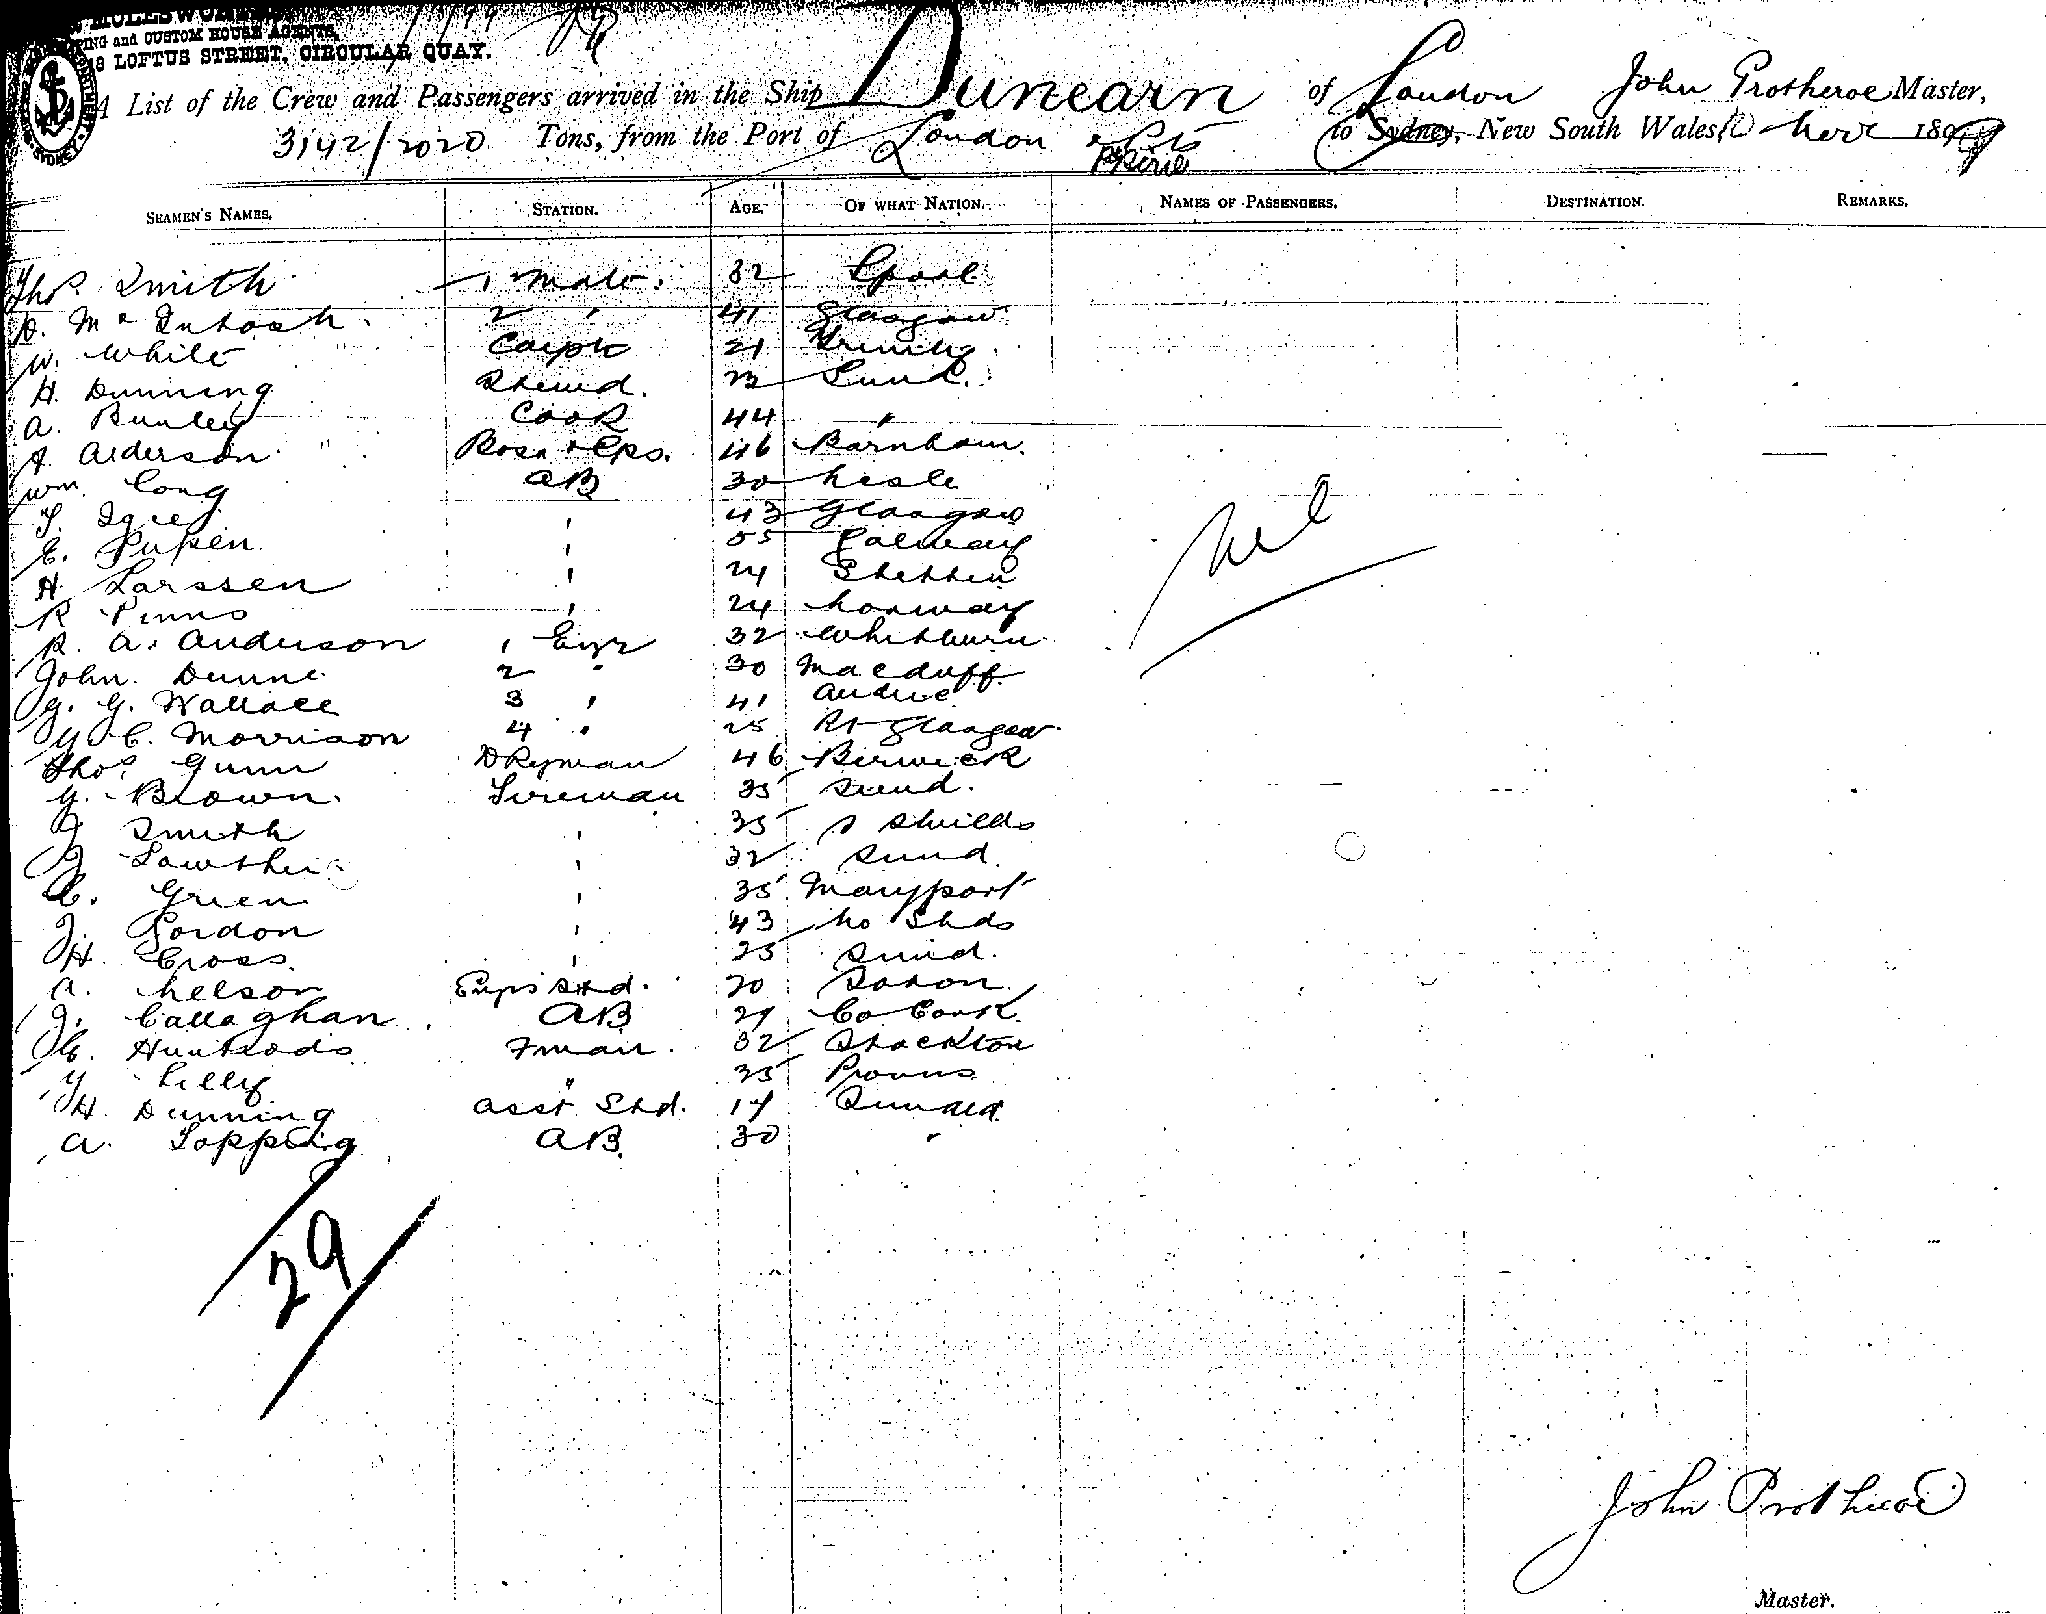 SHIPPING and CUSTOM HOUSE AGENTS,
18 LOFTUS STREET, CIRCULAR QUAY.
A List of the Crew and Passengers arrived in the Ship Dunearn of London John Protheroe Master,
3142/2020 Tons, from the Port of London to Sydney, New South Wales, 189
SEAMEN'S NAMES. STATION. AGE. OF WHAT NATION. NAMES OF PASSENGERS. DESTINATION. REMARKS.
Thos. Smith 1 Mate. 32 Lpool
D. McIntosh. 2 " 41 Glasgow
W. White Carptr 21
H. Dunning Stewd. Sund.
A. Cook 44 "
A. Alderson Bosn & Lps. 46 Barnham.
Wm. Long AB 30
43 Glasgow
E. " 55 Galway
H. Larssen " 24 Stettin
R " 24 Norway
R. A. Anderson 1 Engr 32 Whitburn
John Dunne 2 " 30 Macduff
G. G. Wallace 3 " 41
C. Morrison 4 " 25 Pt Glasgow
Thos. Gunn DKeyman 46 Berwick
G. Brown. Fireman 35 Sund.
J Smith " 35 S Shields
J Lowther " 32 Sund.
C. Green " 35 Maryport
J. Gordon " 43 No Shds
H. Cross. " 25 Sund.
A. Nelson Engrs Std. 20
J. Callaghan AB 29 Co Cork
C. Huntrods Fman. 32 Stockton
Lilly " 35
H. Dunning Asst Std. 14 Sundld.
A. Topping AB. 30 "
Nil
29
John Protheroe
Master.